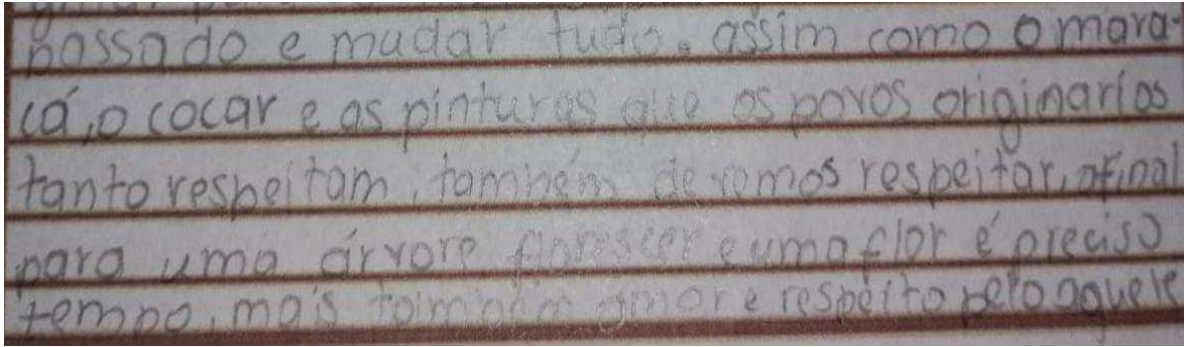 passado e mudar tudo. assim como o mara-
cá, o cocar e as pinturas que os povos originarios
tanto respeitam, também devemos respeitar, afinal
para uma árvore florescer e uma flor é preciso
tempo, mais também amor e respeito pelo aquele